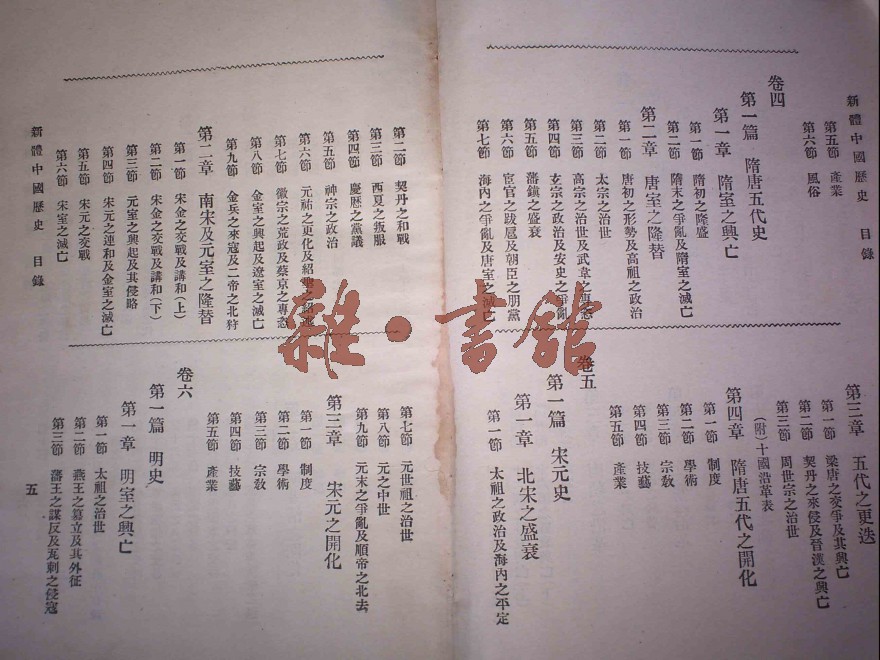 新體中國歷史　目錄
第五節　產業
第六節　風俗
卷四
第一篇　隋唐五代史
第一章　隋室之興亡
第一節　隋初之隆盛
第二節　隋末之爭亂及隋室之滅亡
第二章　唐室之隆替
第一節　唐初之形勢及高祖之政治
第二節　太宗之治世
第三節　高宗之治世及武韋之專恣
第四節　玄宗之政治及安史之爭亂
第五節　藩鎭之盛衰
第六節　宦官之跋扈及朝臣之朋黨
第七節　海內之爭亂及唐室之滅亡
第三章　五代之更迭
第一節　梁唐之交爭及其興亡
第二節　契丹之來侵及晉漢之興亡
第三節　周世宗之治世
(附)十國沿革表
第四章　隋唐五代之開化
第一節　制度
第二節　學術
第三節　宗敎
第四節　技藝
第五節　產業
卷五
第一篇　宋元史
第一章　北宋之盛衰
第一節　太祖之政治及海內之平定
第二節　契丹之和戰
第三節　西夏之叛服
第四節　慶曆之黨議
第五節　神宗之政治
第六節　元祐之更化及紹聖之紹述
第七節　徽宗之荒政及蔡京之專恣
第八節　金室之興起及遼室之滅亡
第九節　金兵之來寇及二帝之北狩
第二章　南宋及元室之隆替
第一節　宋金之交戰及講和(上)
第二節　宋金之交戰及講和(下)
第三節　元室之興起及其侵略
第四節　宋元之連和及金室之滅亡
第五節　宋元之交戰
第六節　宋室之滅亡
新體中國歷史　目錄
第七節　元世祖之治世
第八節　元之中世
第九節　元末之爭亂及順帝之北去
第三章　宋元之開化
第一節　制度
第二節　學術
第三節　宗敎
第四節　技藝
第五節　產業
卷六
第一篇　明史
第一章　明室之興亡
第一節　太祖之治世
第二節　燕王之簒立及其外征
第三節　藩王之謀反及瓦剌之侵寇
五
雜·書館